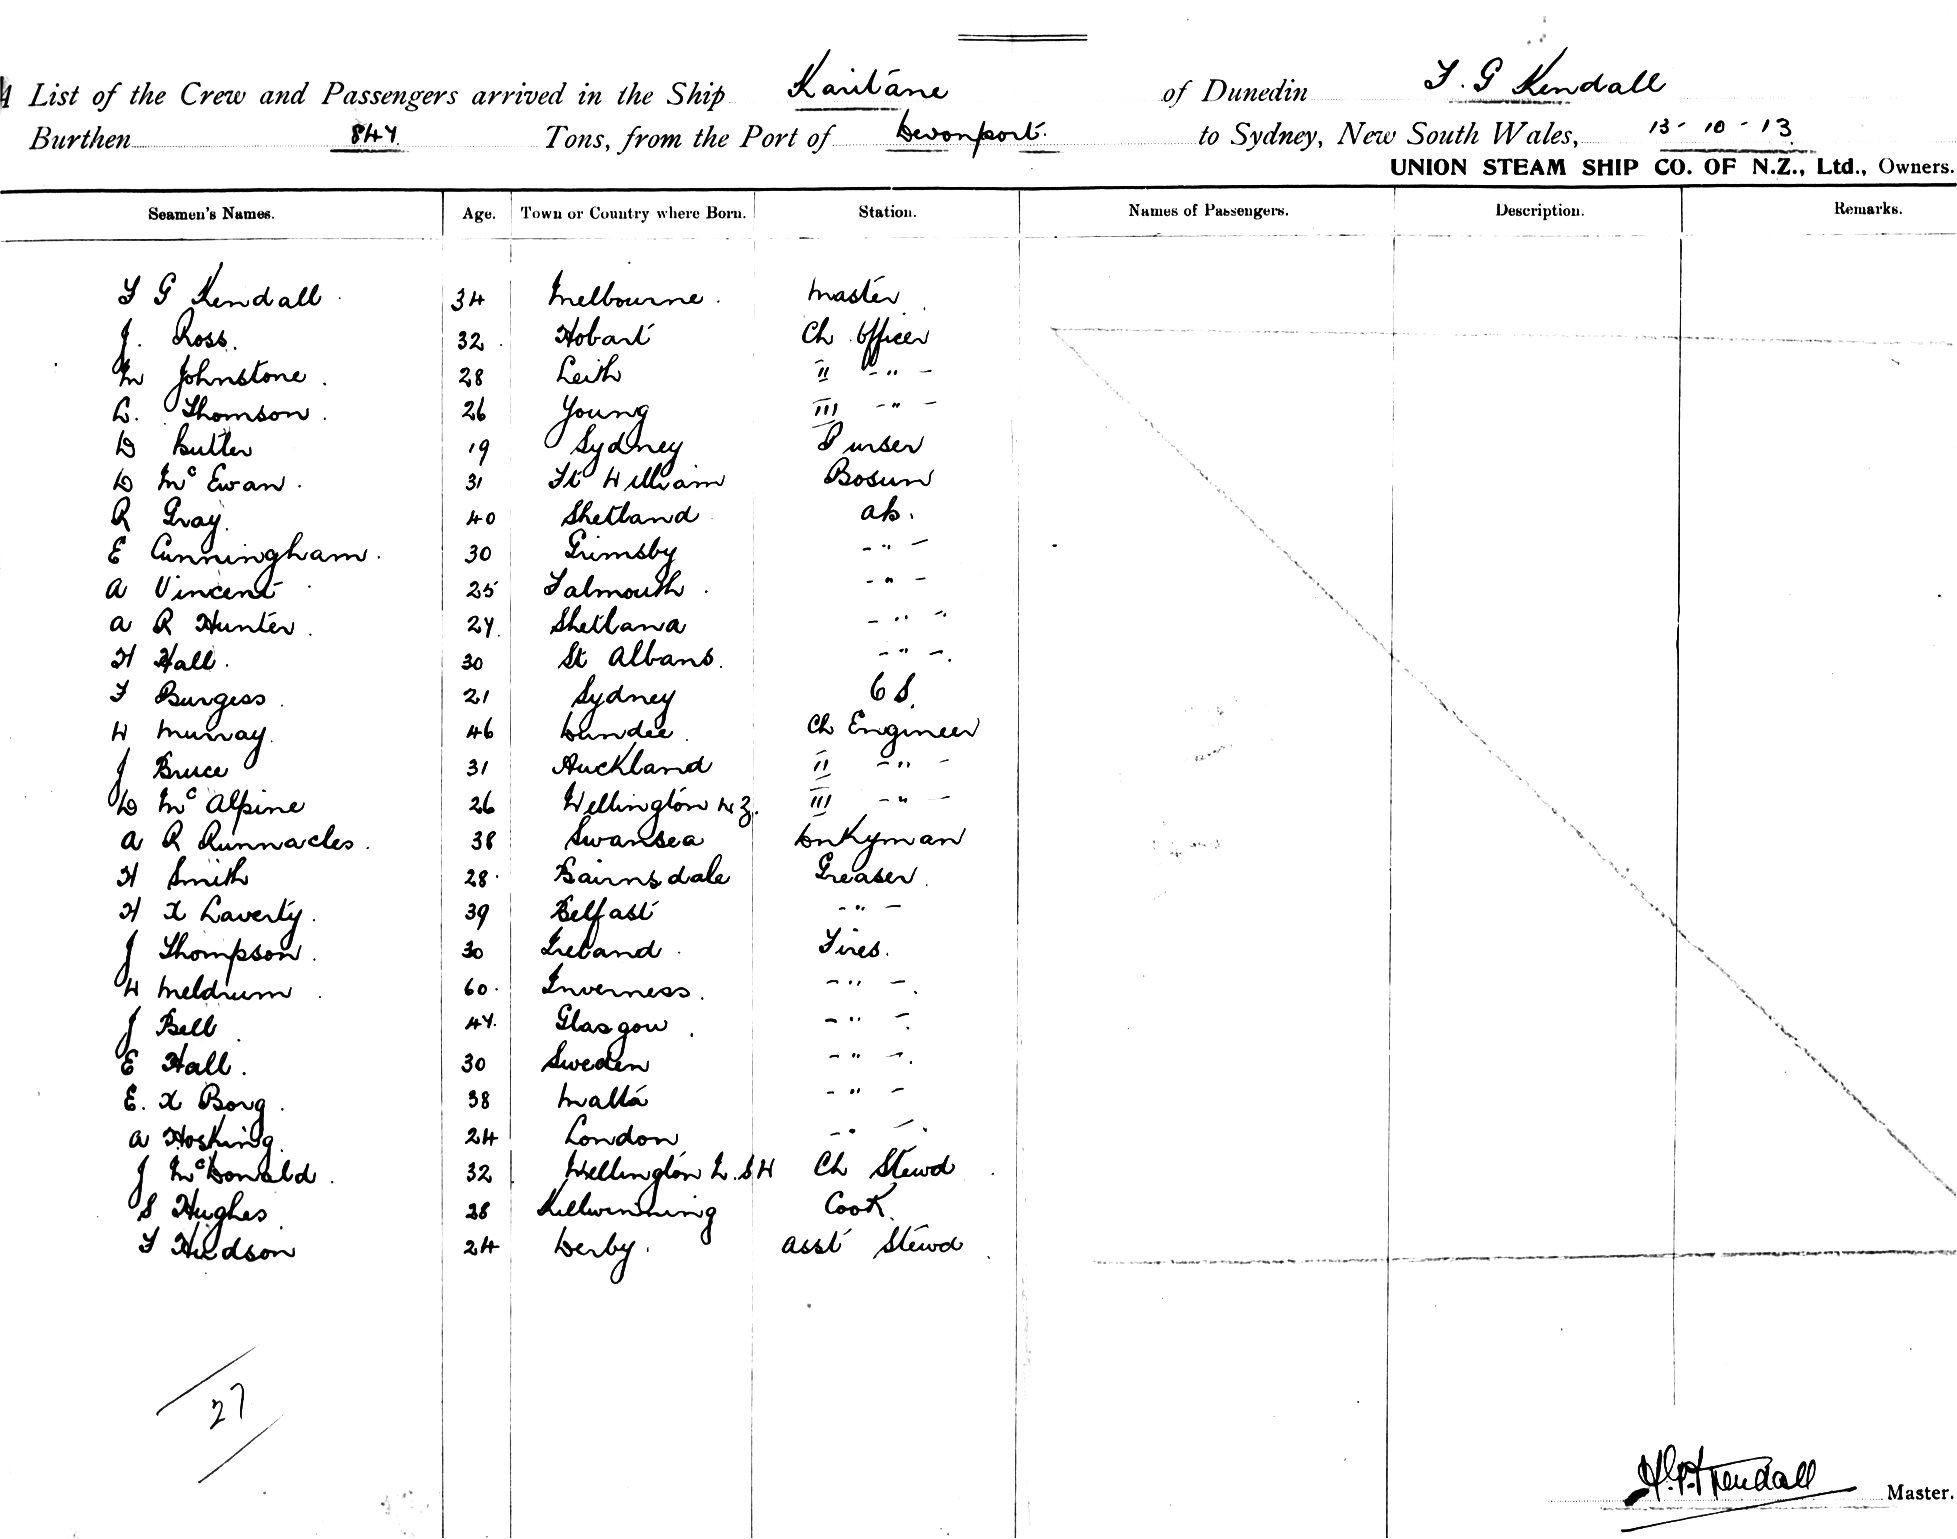 A List of the Crew and Passengers arrived in the Ship Kaitane of Dunedin F. G Kendall
Burthen 847 Tons, from the Port of Devonport. to Sydney, New South Wales, 13-10-13
UNION STEAM SHIP CO. OF N.Z., Ltd., Owners.
Seamen's Names. Age. Town or Country where Born. Station. Names of Passengers. Description. Remarks.
F G Kendall 34 Melbourne. Master
J. Ross. 32 Hobart Ch Officer
M Johnstone. 28 Leith II -"-
L. Thomson. 26 Young III -"-
D Butler 19 Sydney Purser
D McEwan. 31 Ft William Bosun
R Gray. 40 Shetland ab.
E Cunningham. 30 Grimsby -"-
A Vincent 25 Falmouth. -"-
A R Hunter. 27. Shetland -"-
H Hall. 30 St Albans. -"-.
F Burgess. 21 Sydney O S.
W Murray. 46 Dundee. Ch Engineer
J Bruce 31 Auckland II -"-
D McAlpine 26 Wellington N Z. III -"-
A R Runnacles. 38 Swansea Dnkyman
H Smith 28 Bairnsdale Greaser.
H X Laverty. 39 Belfast -"-
J Thompson. 30 Ireland. Fires.
W Meldrum. 60. Inverness. -"-.
J Bell. 47. Glasgow. -"-.
E Hall. 30 Sweden -"-.
E. X Borg. 38 Malta -"-
A Hosking. 24 London -"-.
J McDonald. 32 Wellington N. S W Ch Stewd
S Hughes. 28 Killwinning Cook.
F Hudson 24 Derby. Asst Stewd.
27
Kendall Master.